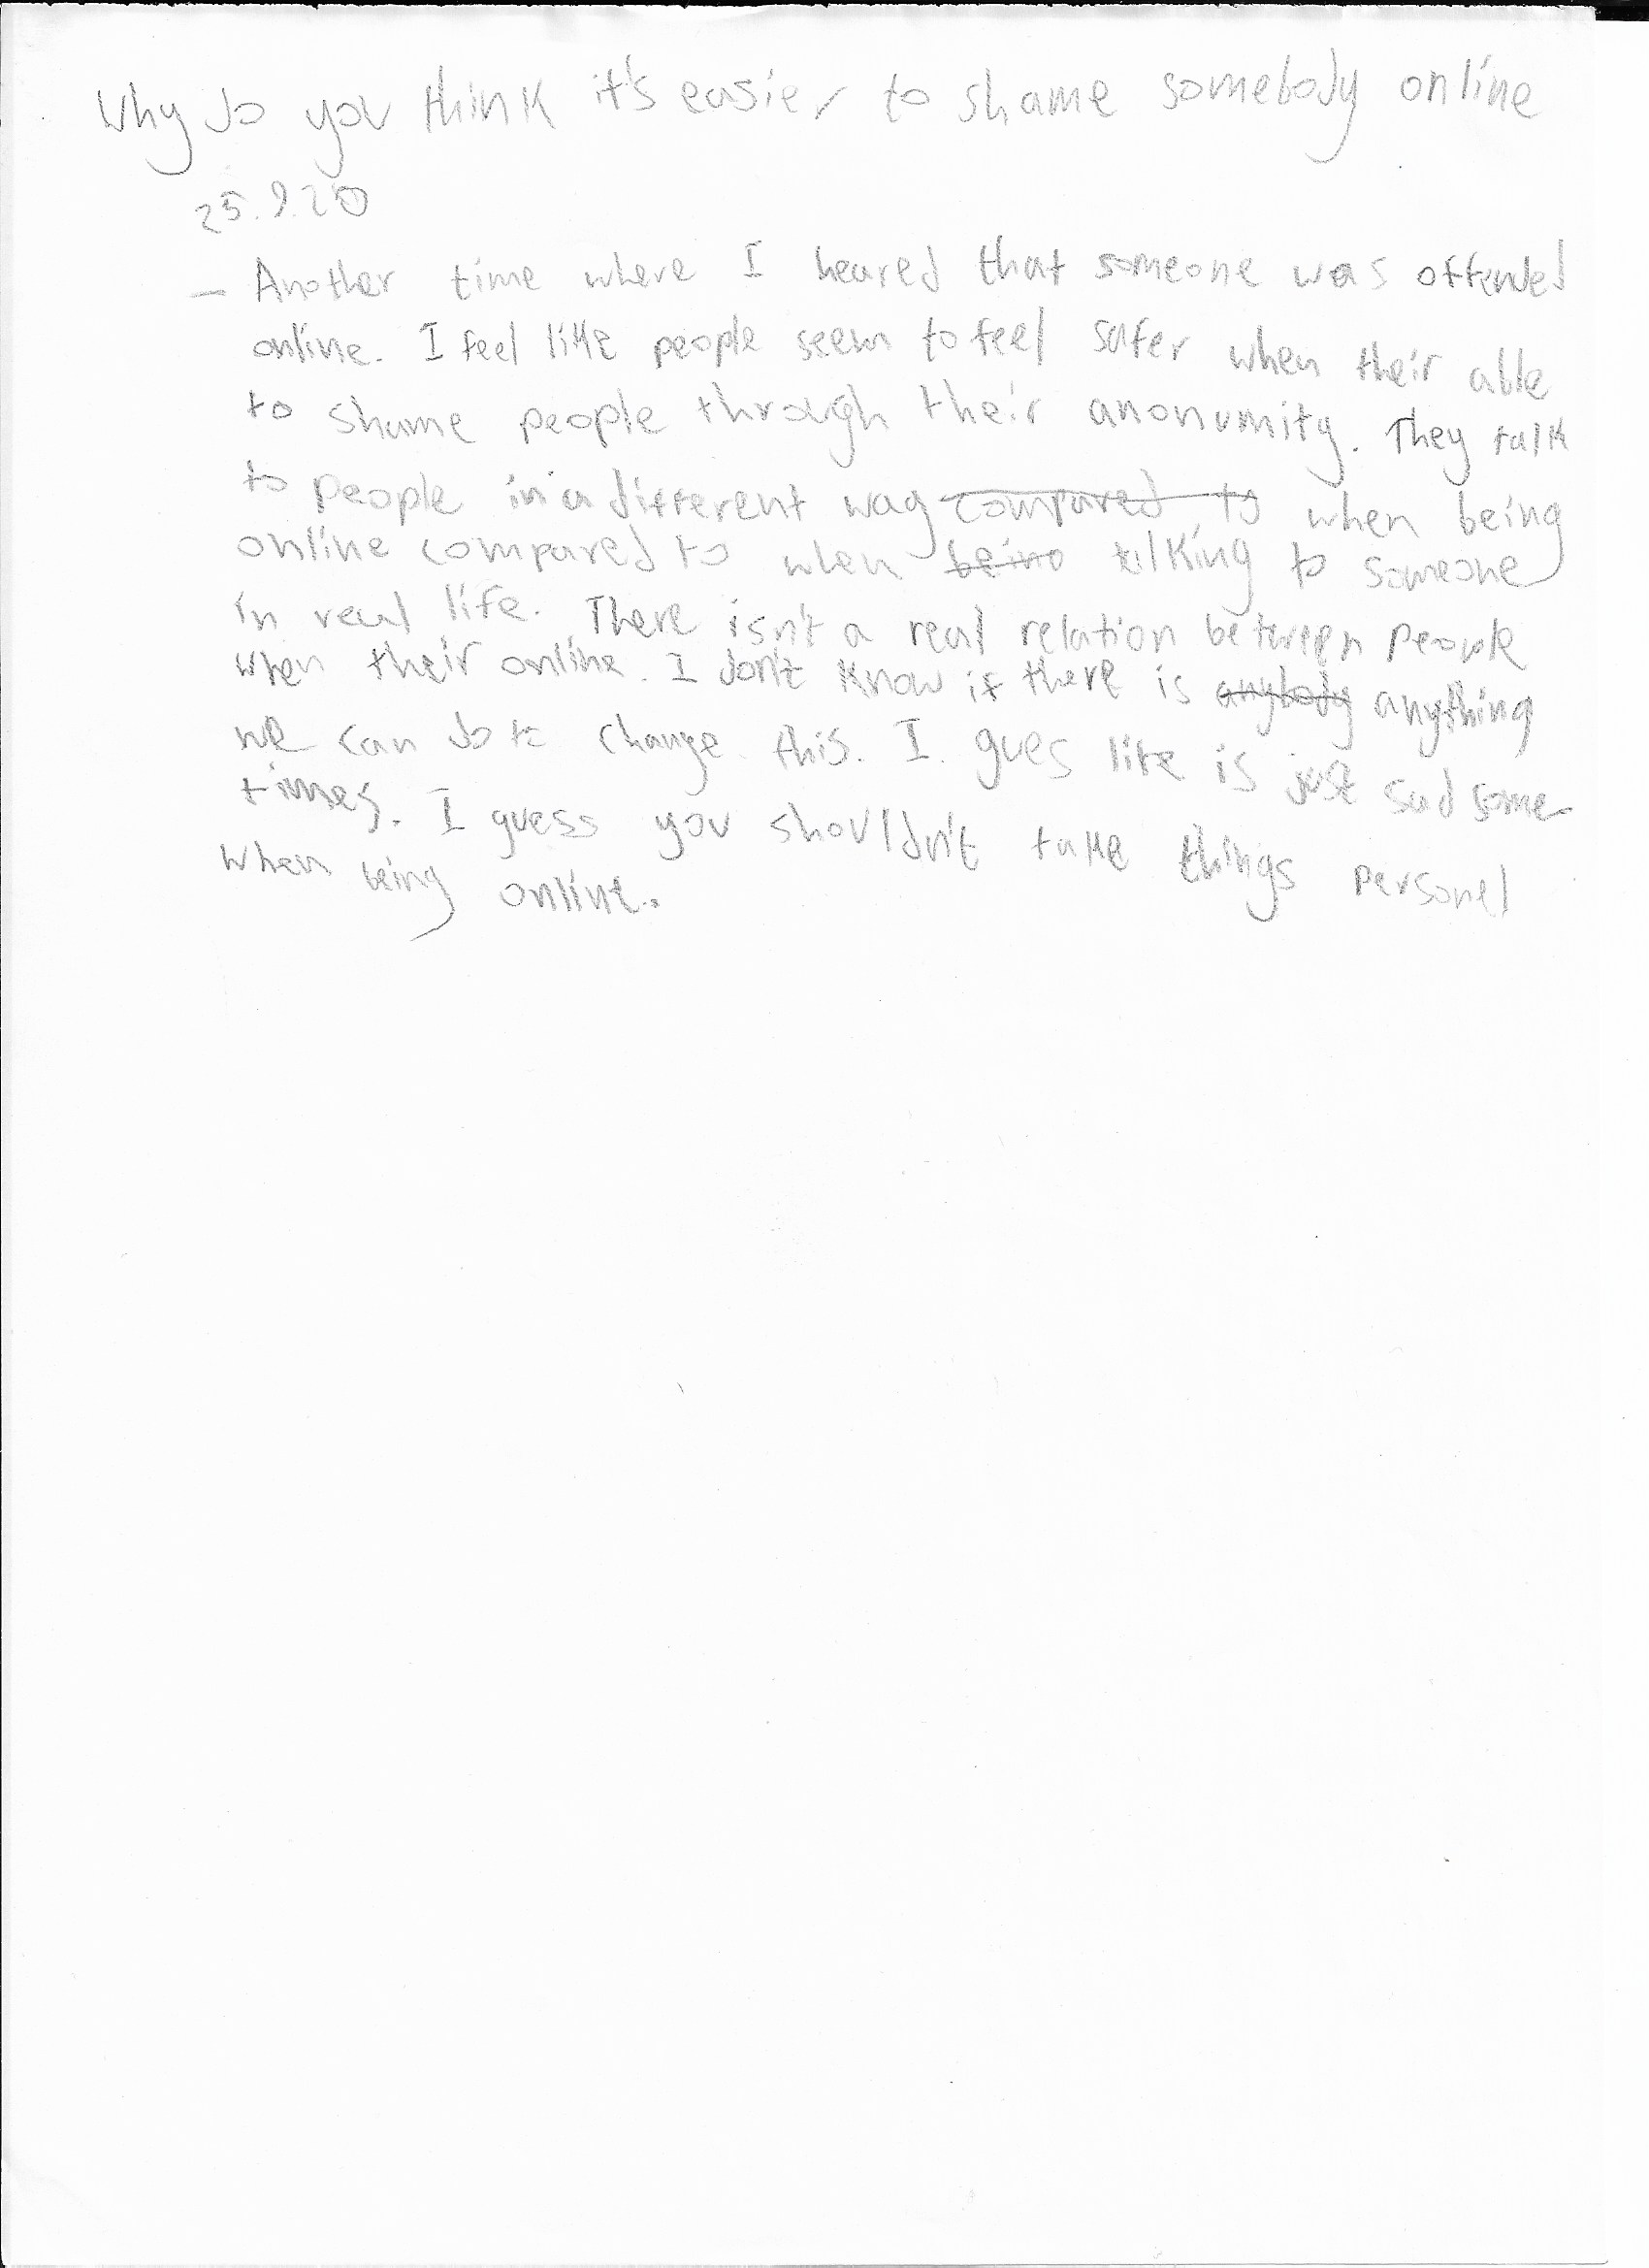 Why do you think it's easier to shame somebody online
25.9.20
- Another time where I heared that someone was offended
online. I feel like people seem to feel safer when their able
to shame people through their anonumity. They talk
to people in a different way ~~compared to~~ when being
online compared to when ~~being~~ talking to someone
in real life. There isn't a real relation between people
when their online. I don't know if there is ~~anybody~~ anything
we can do to change this. I gues life is just sad some-
times. I guess you shouldn't take things personel
when being online.